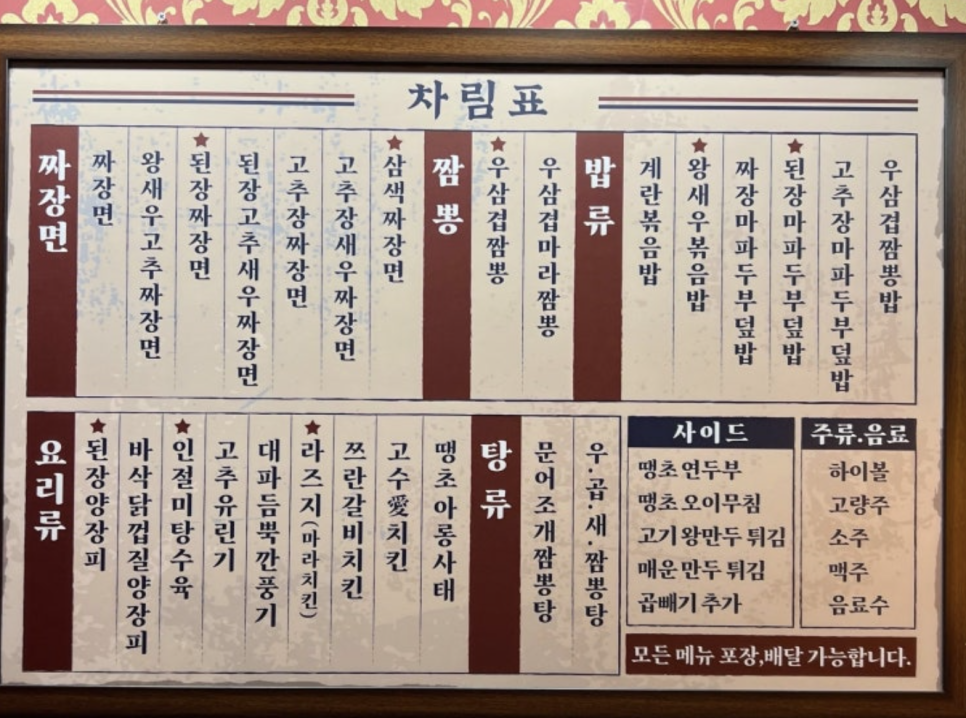 차림표
짜장면
짜장면
왕새우고추짜장면
★된장짜장면
된장고추새우짜장면
고추장짜장면
고추장새우짜장면
★삼색짜장면
짬뽕
★우삼겹짬뽕
우삼겹마라짬뽕
밥류
계란볶음밥
★왕새우볶음밥
짜장마파두부덮밥
★된장마파두부덮밥
고추장마파두부덮밥
우삼겹짬뽕밥
요리류
★된장양장피
바삭닭껍질양장피
★인절미탕수육
고추유린기
대파듬뿍깐풍기
★라즈지(마라치킨)
쯔란갈비치킨
고수愛치킨
땡초아롱사태
탕류
문어조개짬뽕탕
우.곱.새.짬뽕탕
사이드
땡초 연두부
땡초 오이무침
고기 왕만두 튀김
매운 만두 튀김
곱빼기 추가
주류.음료
하이볼
고량주
소주
맥주
음료수
모든 메뉴 포장,배달 가능합니다.